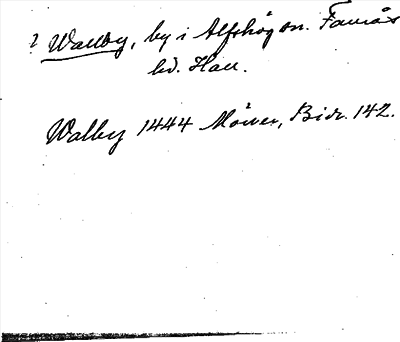 ? Wallby, by i Alfshög sn. Faurås
hd. Hall.
Walby 1444 Möwer, Bidr. 142.